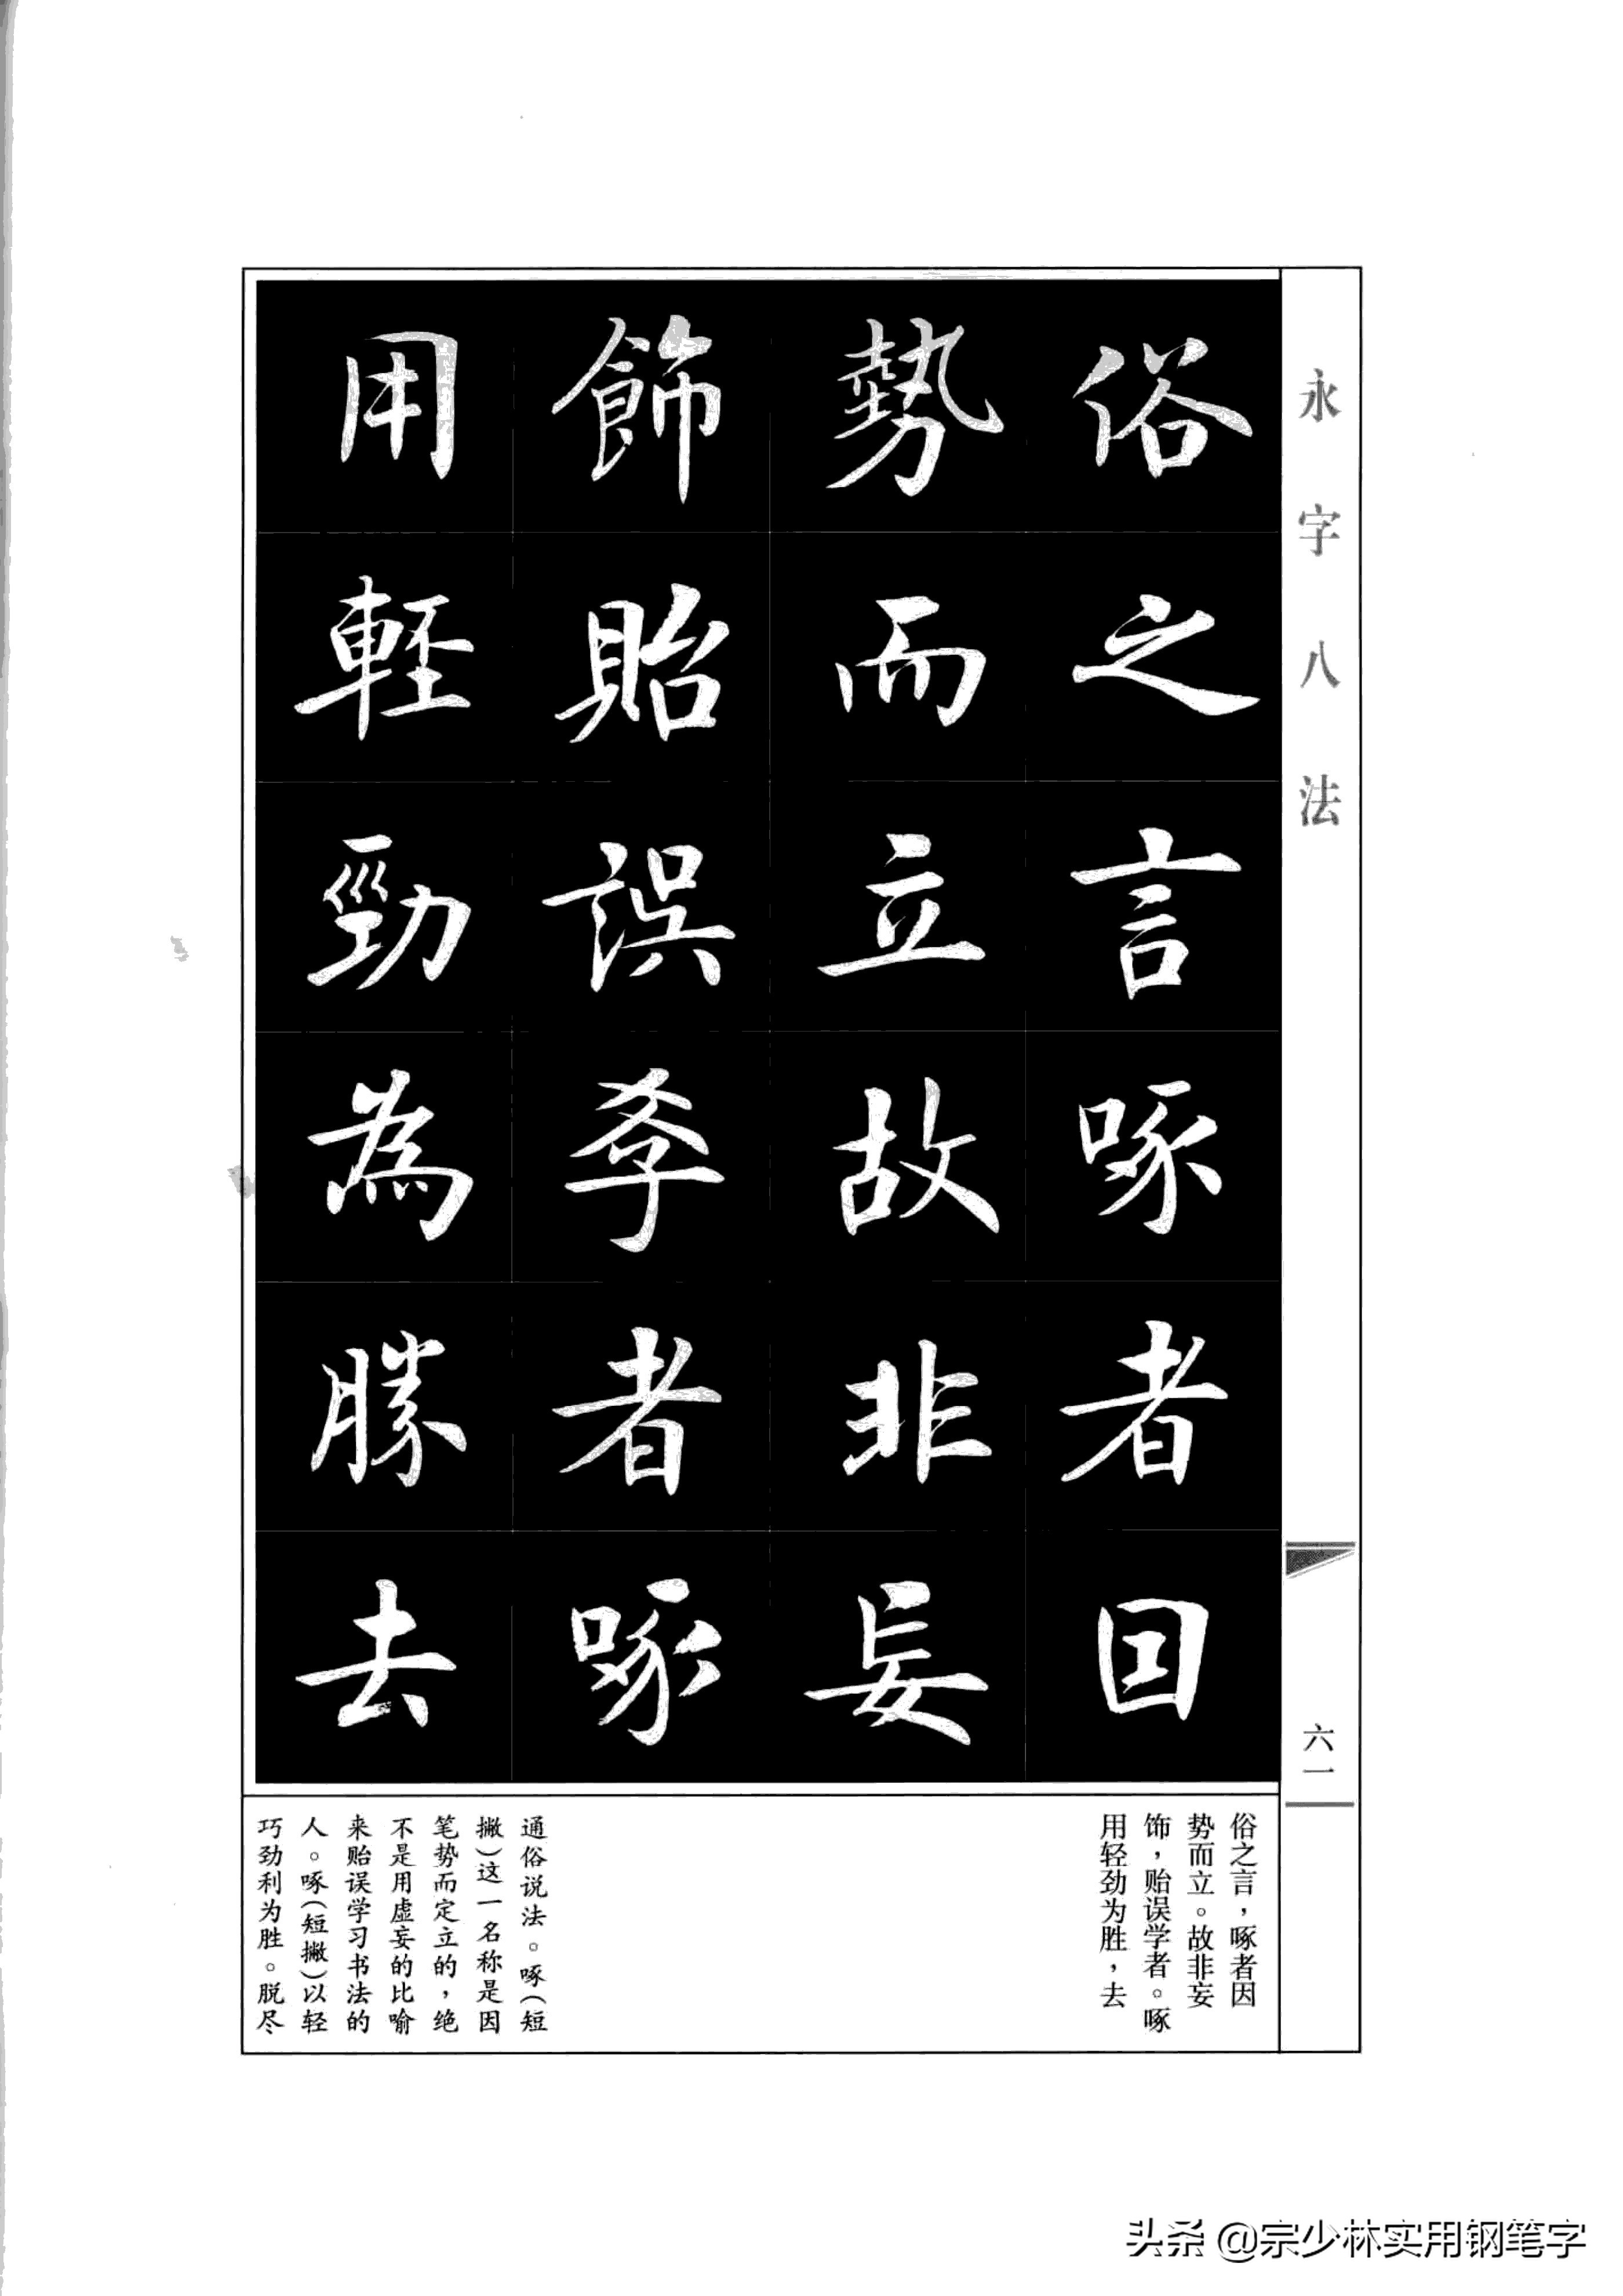 永字八法
六一
俗之言啄者因
勢而立故非妄
飾貽誤季者啄
用輕勁為勝去
俗之言，啄者因
势而立。故非妄
饰，贻误学者。啄
用轻劲为胜，去
通俗说法。啄（短
撇）这一名称是因
笔势而定立的，绝
不是用虚妄的比喻
来贻误学习书法的
人。啄（短撇）以轻
巧劲利为胜。脱尽
头条 @宗少林实用钢笔字